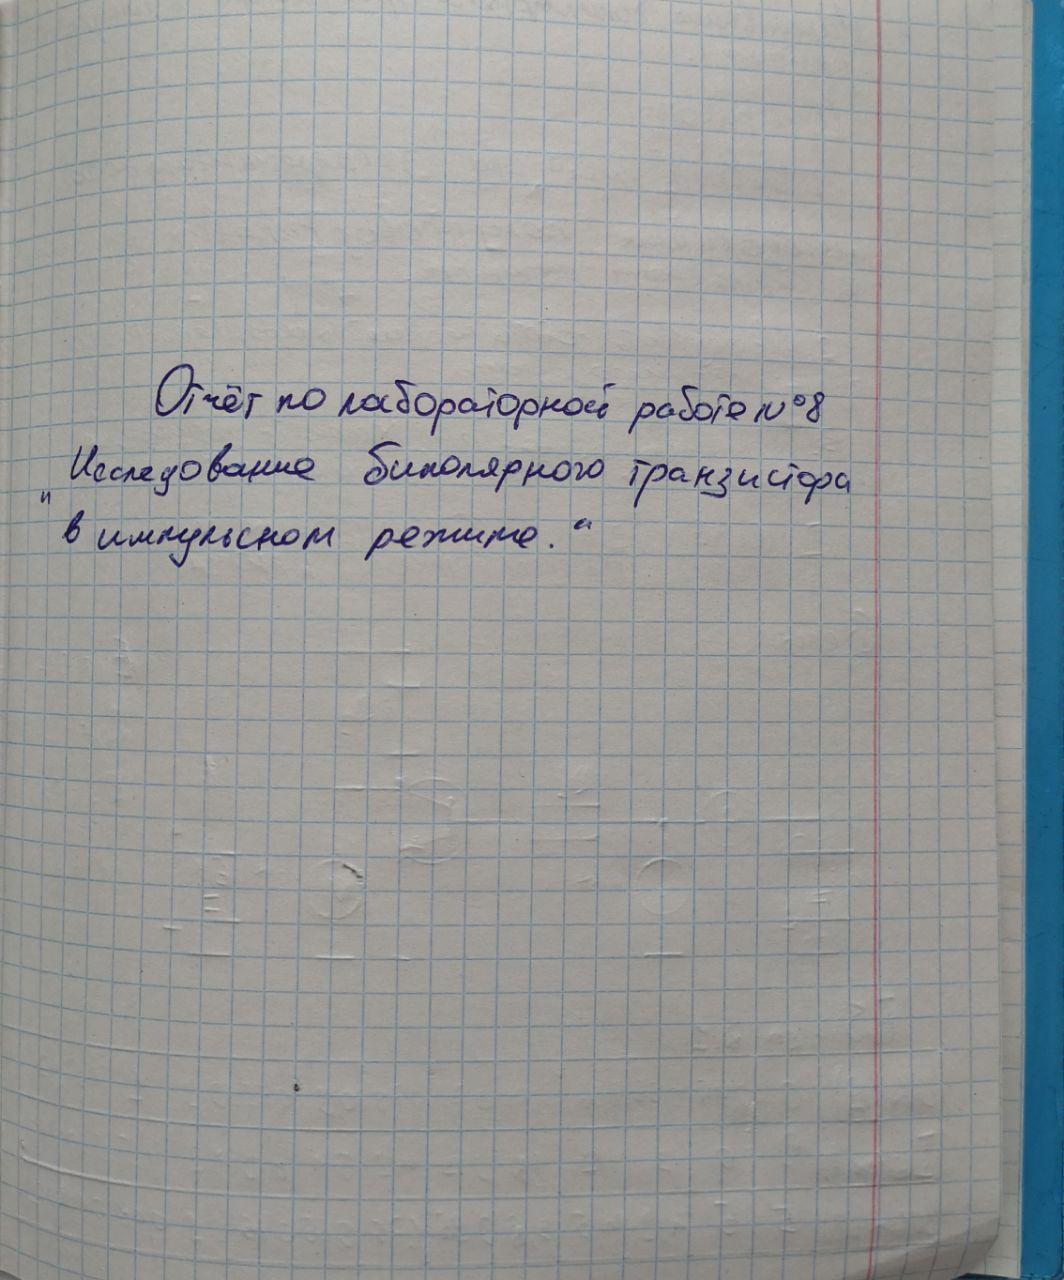 Отчёт по лабораторной работе №8
"Исследование биполярного транзистора
в импульсном режиме."